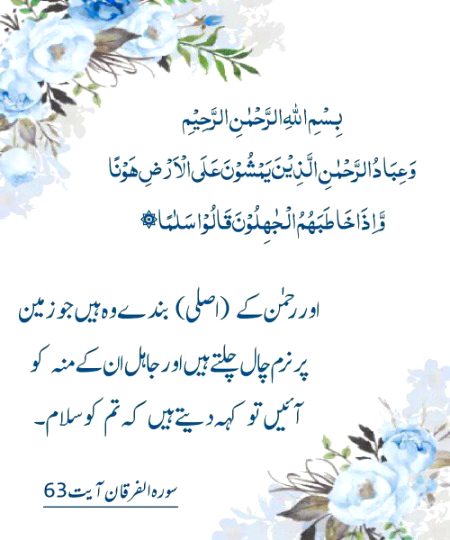 بِسْمِ اللهِ الرَّحْمٰنِ الرَّحِيْمِ
وَعِبَادُ الرَّحْمٰنِ الَّذِيْنَ يَمْشُوْنَ عَلَى الْاَرْضِ هَوْنًا
وَّاِذَا خَاطَبَهُمُ الْجٰهِلُوْنَ قَالُوْا سَلٰمًا ۞
اور رحمٰن کے (اصلی) بندے وہ ہیں جو زمین
پر نرم چال چلتے ہیں اور جاہل ان کے منہ کو
آئیں تو کہہ دیتے ہیں کہ تم کو سلام۔
سورہ الفرقان آیت 63